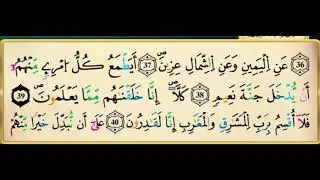 ٣٦ عَنِ الْيَمِينِ وَعَنِ الشِّمَالِ عِزِينَ ٣٧ أَيَطْمَعُ كُلُّ امْرِئٍ مِنْهُمْ
أَنْ يُدْخَلَ جَنَّةَ نَعِيمٍ ٣٨ كَلَّا إِنَّا خَلَقْنَاهُمْ مِمَّا يَعْلَمُونَ ٣٩
فَلَا أُقْسِمُ بِرَبِّ الْمَشَارِقِ وَالْمَغَارِبِ إِنَّا لَقَادِرُونَ ٤٠ عَلَىٰ أَنْ نُبَدِّلَ خَيْرًا مِنْهُمْ